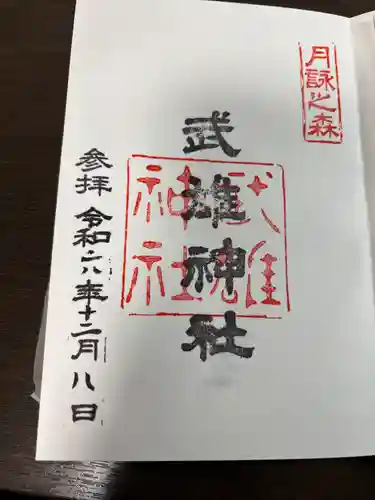 月詠之森
武雄神社
武雄神社
参拝 令和·六年十二月八日